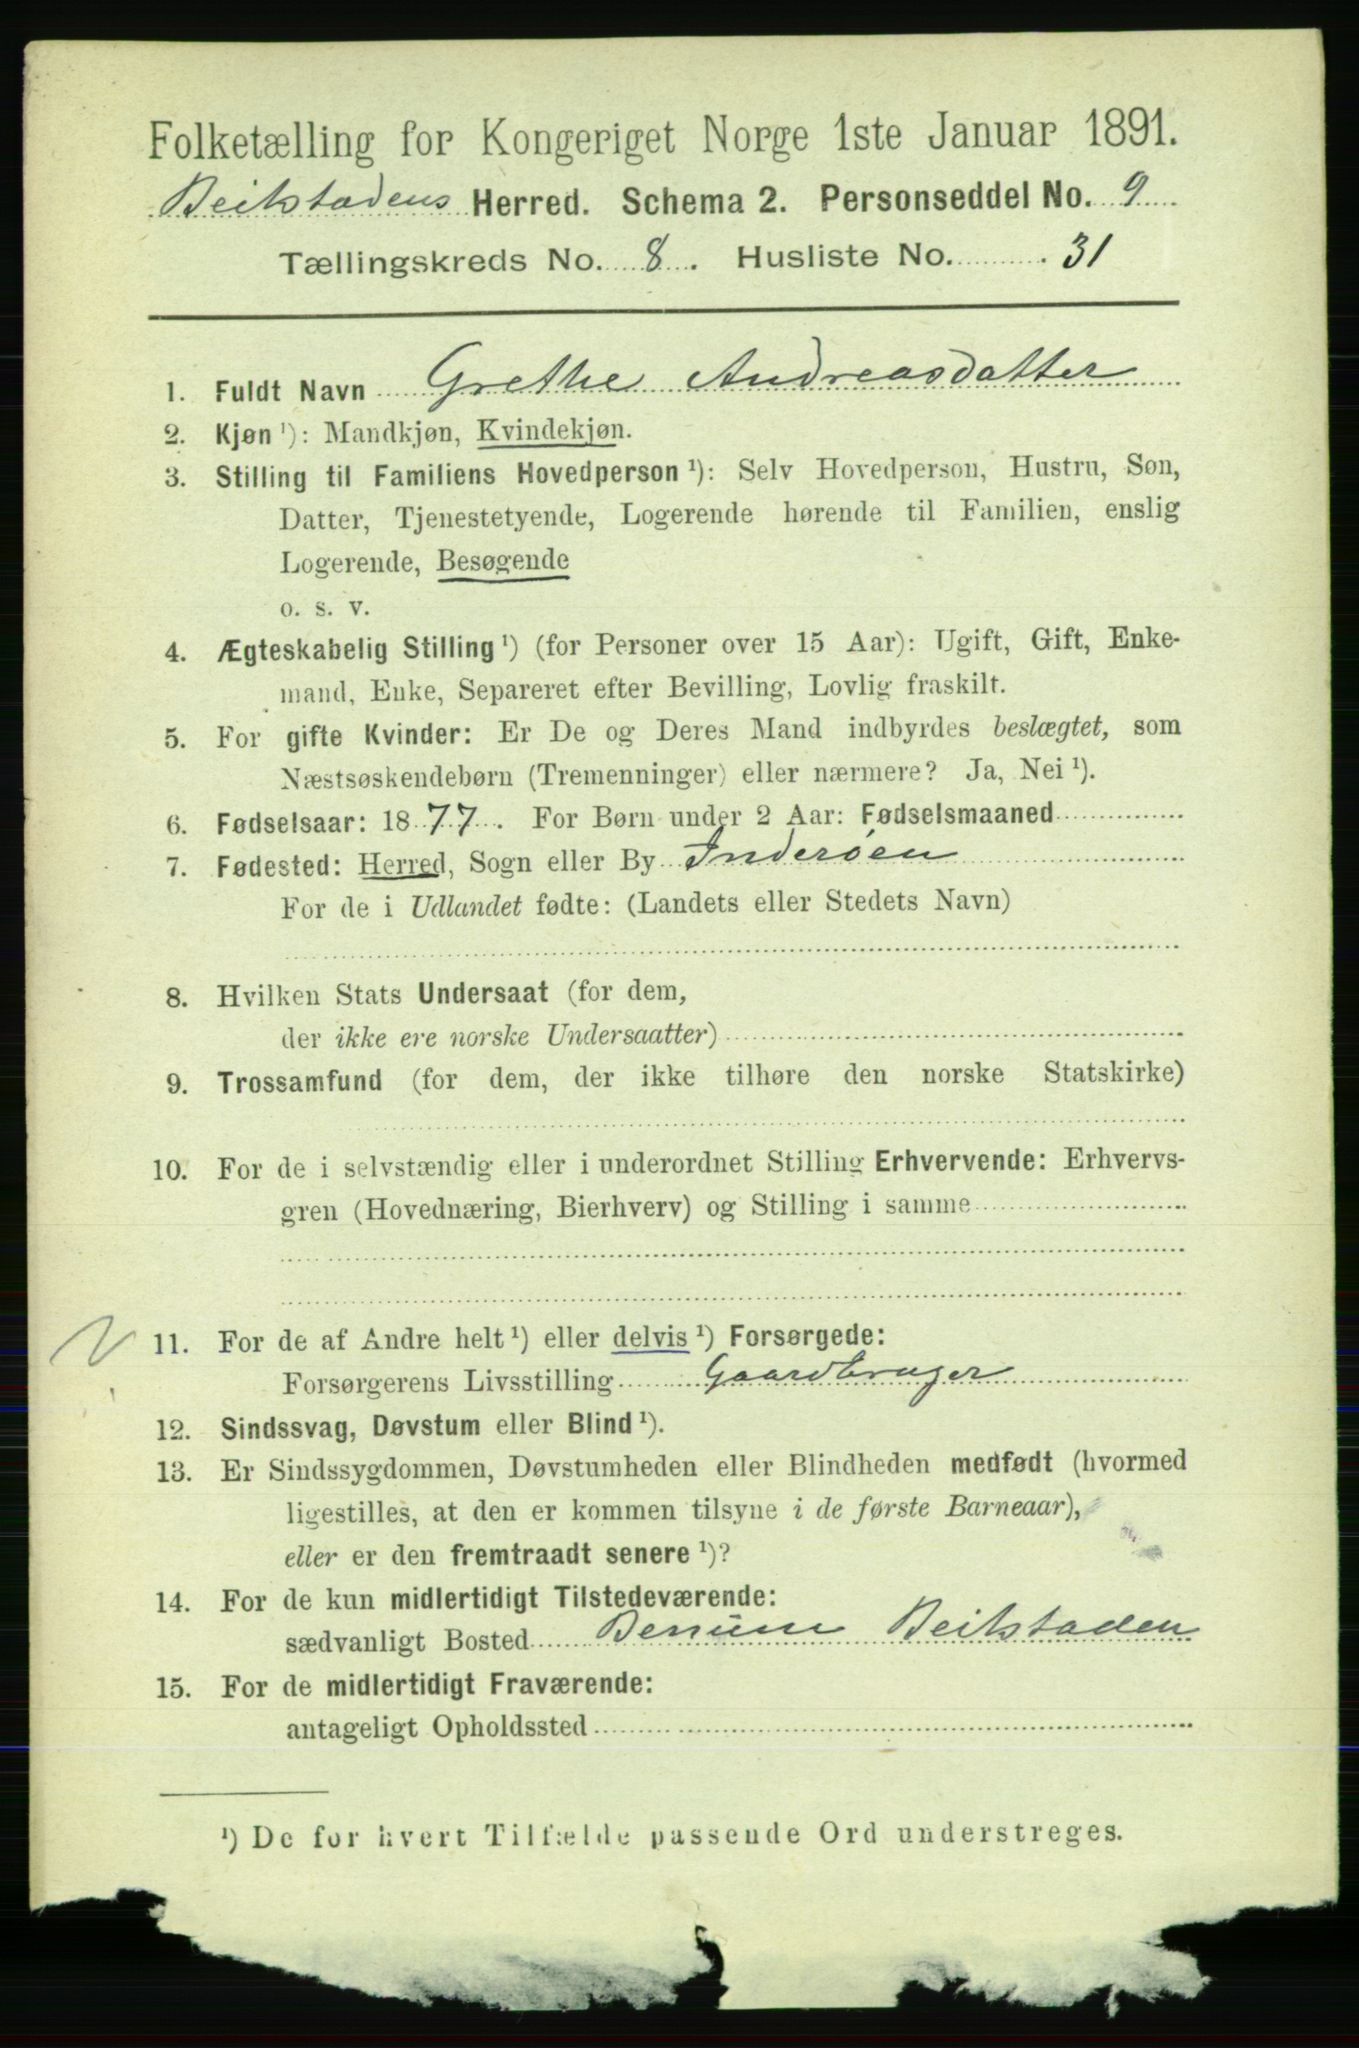 Folketælling for Kongeriget Norge 1ste Januar 1891.
Beitstadens Herred. Schema 2. Personseddel No. 9
Tællingskreds No. 8. Husliste No. 31
1. Fuldt Navn Grethe Andreasdatter
2. Kjøn ¹): Mandkjøn, Kvindekjøn.
3. Stilling til Familiens Hovedperson ¹): Selv Hovedperson, Hustru, Søn,
Datter, Tjenestetyende, Logerende hørende til Familien, enslig
Logerende, Besøgende
o. s. v.
4. Ægteskabelig Stilling ¹) (for Personer over 15 Aar): Ugift, Gift, Enke-
mand, Enke, Separeret efter Bevilling, Lovlig fraskilt.
5. For gifte Kvinder: Er De og Deres Mand indbyrdes beslægtet, som
Næstsøskendebørn (Tremenninger) eller nærmere? Ja, Nei ¹).
6. Fødselsaar: 1877. For Børn under 2 Aar: Fødselsmaaned
7. Fødested: Herred, Sogn eller By Inderøen
For de i Udlandet fødte: (Landets eller Stedets Navn)
8. Hvilken Stats Undersaat (for dem,
der ikke ere norske Undersaatter)
9. Trossamfund (for dem, der ikke tilhøre den norske Statskirke)
10. For de i selvstændig eller i underordnet Stilling Erhvervende: Erhvervs-
gren (Hovednæring, Bierhverv) og Stilling i samme
11. For de af Andre helt ¹) eller delvis ¹) Forsørgede:
Forsørgerens Livsstilling Gaardbruger
12. Sindssvag, Døvstum eller Blind ¹).
13. Er Sindssygdommen, Døvstumheden eller Blindheden medfødt (hvormed
ligestilles, at den er kommen tilsyne i de første Barneaar),
eller er den fremtraadt senere ¹)?
14. For de kun midlertidigt Tilstedeværende:
sædvanligt Bosted Benum Beitstaden
15. For de midlertidigt Fraværende:
antageligt Opholdssted
¹) De for hvert Tilfælde passende Ord understreges.